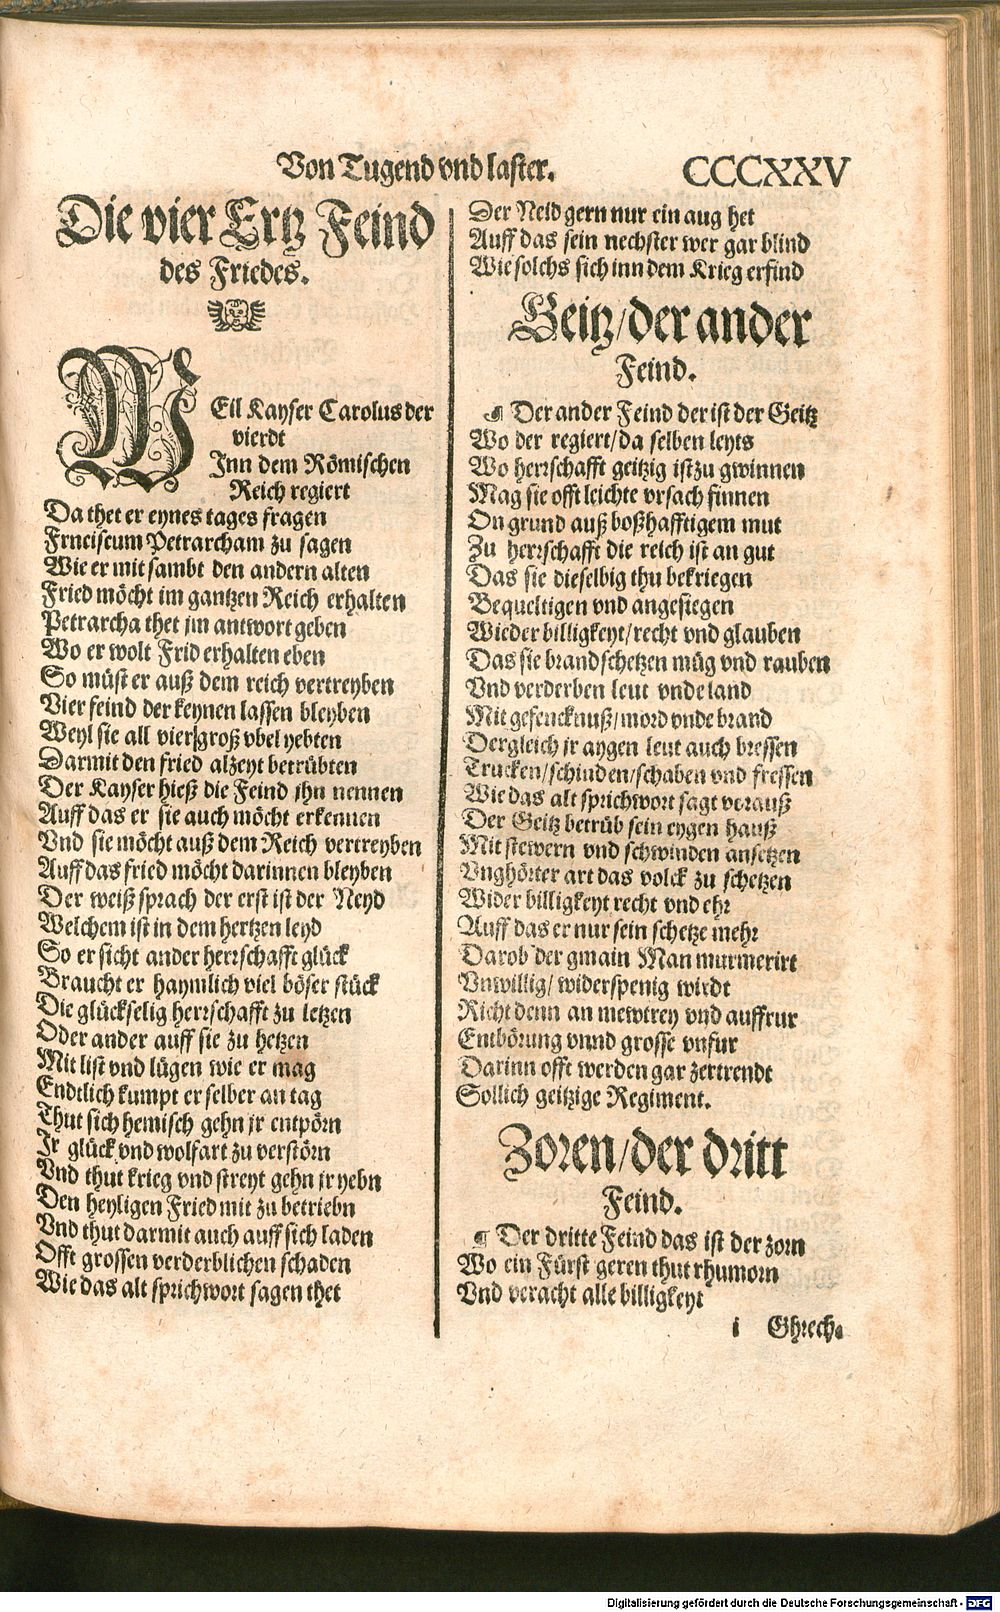 Von Tugend vnd laster. CCCXXV
Die vier Ertz Feind
des Friedes.
WEil Kayser Carolus der
vierdt
Inn dem Römischen
Reich regiert
Da thet er eynes tages fragen
Frnciscum Petrarcham zu sagen
Wie er mit sambt den andern alten
Fried möcht im gantzen Reich erhalten
Petrarcha thet jm antwort geben
Wo er wolt Frid erhalten eben
So müst er auß dem reich vertreyben
Vier feind der keynen lassen bleyben
Weyl sie all vier groß vbel yebten
Darmit den fried alzeyt betrübten
Der Kayser hieß die Feind jhn nennen
Auff das er sie auch möcht erkennen
Vnd sie möcht auß dem Reich vertreyben
Auff das fried möcht darinnen bleyben
Der weiß sprach der erst ist der Neyd
Welchem ist in dem hertzen leyd
So er sicht ander herrschafft glück
Braucht er haymlich viel böser stück
Die glückselig herrschafft zu letzen
Oder ander auff sie zu hetzen
Mit list vnd lügen wie er mag
Endtlich kumpt er selber an tag
Thut sich hemisch gehn jr entpörn
Ir glück vnd wolfart zu verstörn
Vnd thut krieg vnd streyt gehn jr yebn
Den heyligen Fried mit zu betriebn
Vnd thut darmit auch auff sich laden
Offt grossen verderblichen schaden
Wie das alt sprichwort sagen thet
Der Neid gern nur ein aug het
Auff das sein nechster wer gar blind
Wie solchs sich inn dem Krieg erfind
Geitz/der ander
Feind.
¶ Der ander Feind der ist der Geitz
Wo der regiert/da selben leyts
Wo herrschafft geitzig ist zu gwinnen
Mag sie offt leichte vrsach finnen
On grund auß boßhafftigem mut
Zu herrschafft die reich ist an gut
Das sie dieselbig thu bekriegen
Bequeltigen vnd angesiegen
Wieder billigkeyt/recht vnd glauben
Das sie brandschetzen müg vnd rauben
Vnd verderben leut vnde land
Mit gefencknuß/mord vnde brand
Dergleich jr aygen leut auch bressen
Trucken/schinden/schaben vnd fressen
Wie das alt sprichwort sagt vorauß
Der Geitz betrüb sein eygen hauß
Mit stewern vnd schwinden ansetzen
Vnghörter art das volck zu schetzen
Wider billigkeyt recht vnd ehr
Auff das er nur sein schetze mehr
Darob der gmain Man murmerirt
Vnwillig/widerspenig wirdt
Richt denn an mewtrey vnd auffrur
Embörung vnnd grosse vnfur
Darinn offt werden gar zertrendt
Sollich geitzige Regiment.
Zoren/der dritt
Feind.
¶ Der dritte Feind das ist der zorn
Wo ein Fürst geren thut rhumorn
Vnd veracht alle billigkeyt
i Ghrech-
Digitalisierung gefördert durch die Deutsche Forschungsgemeinschaft - DFG